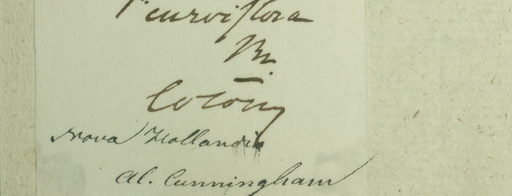 P. curviflora
Br.
Colony
Nova Hollandia
Al. Cunningham